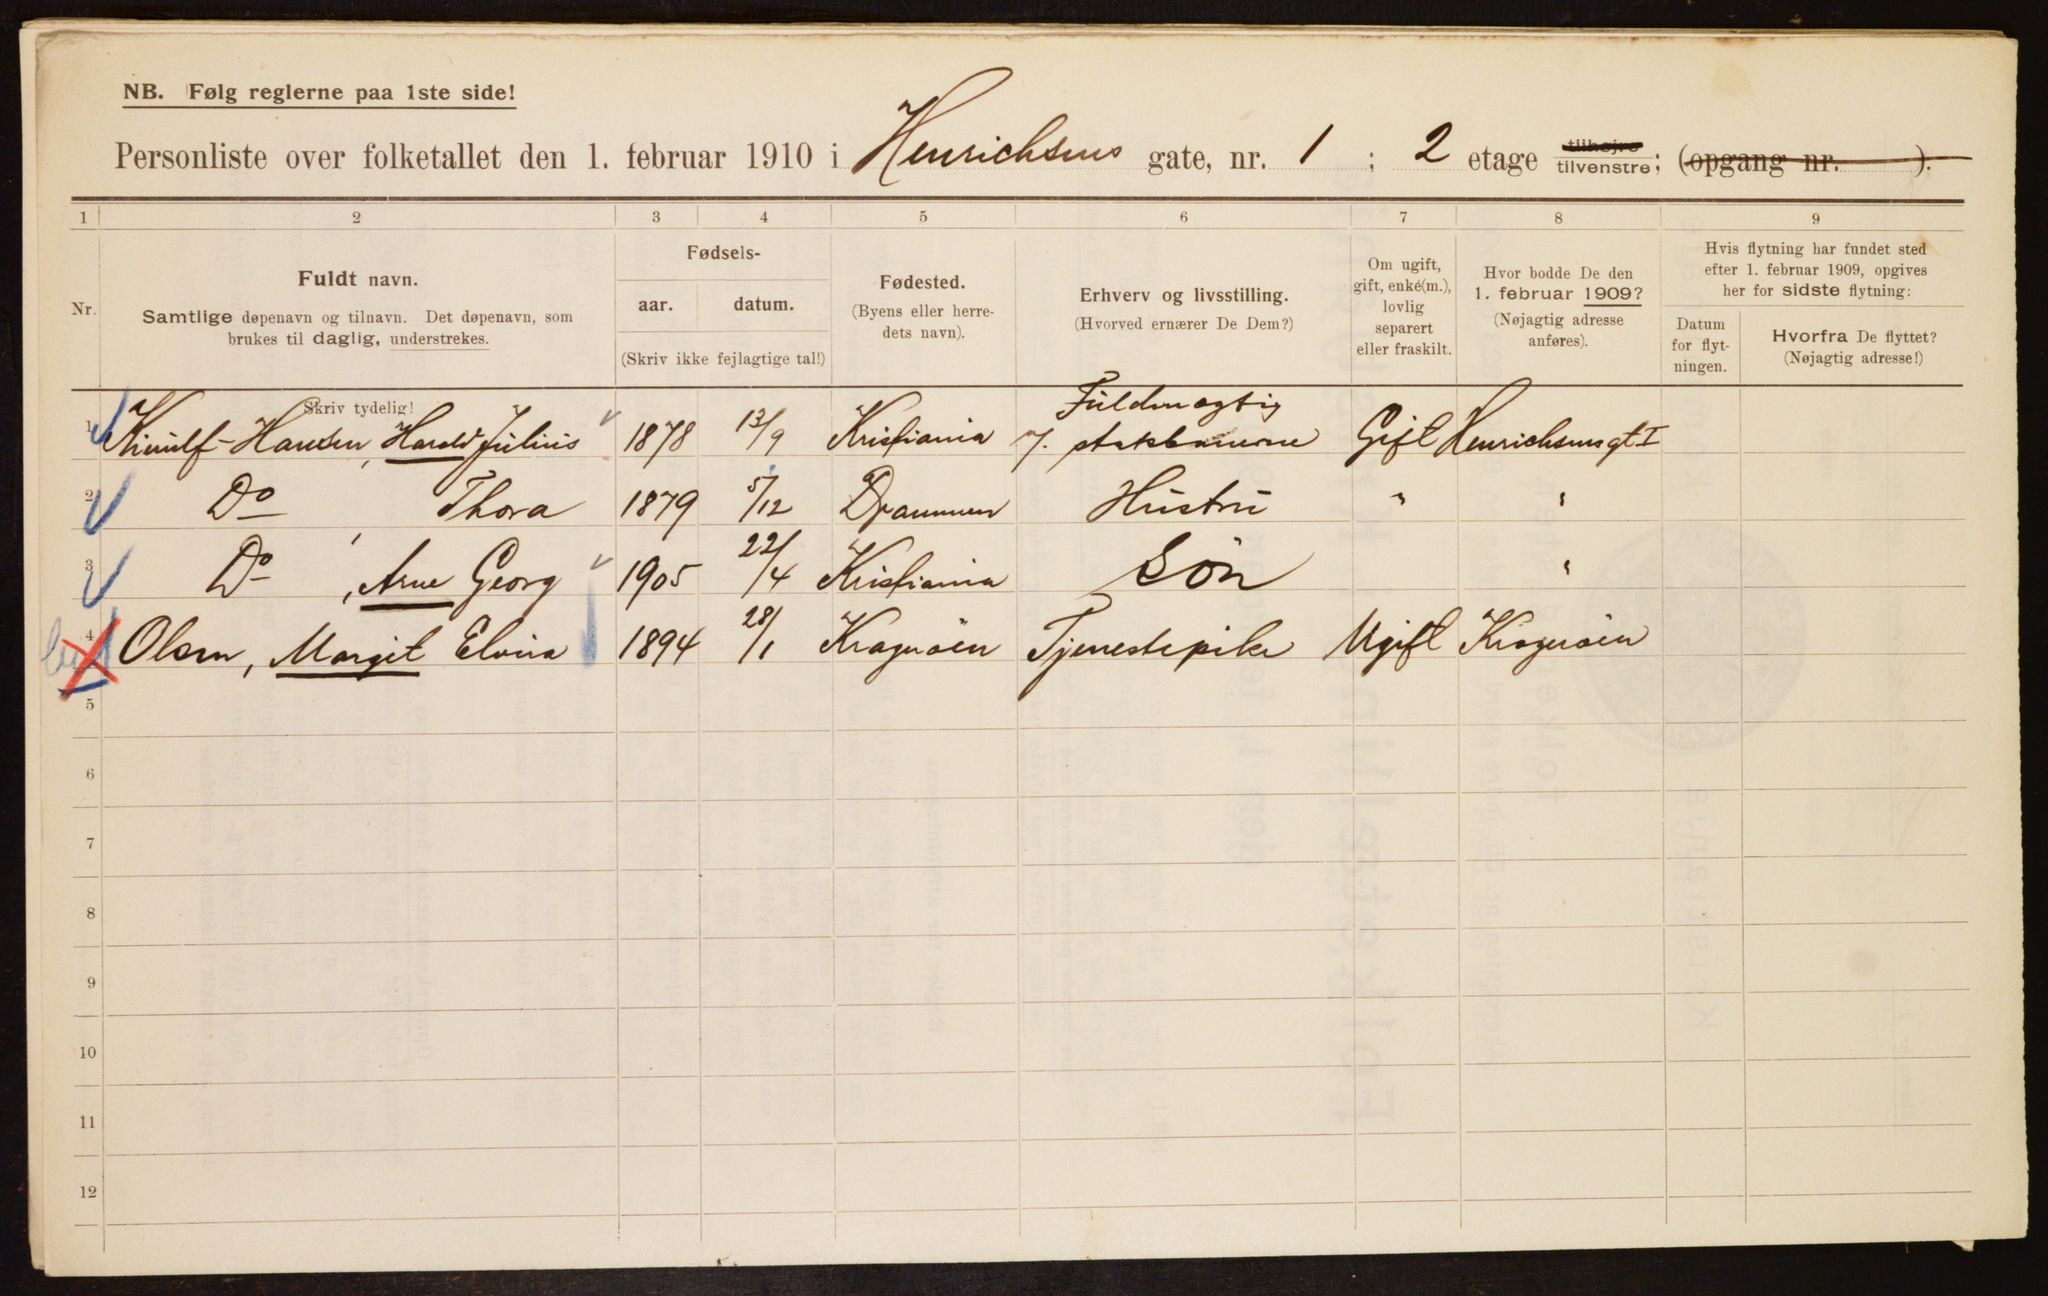 NB. Følg reglerne paa 1ste side!
Personliste over folketallet den 1. februar 1910 i Henrichsens gate, nr. 1 ; 2 etage tilhøjre tilvenstre; (opgang nr. ).
1 2 3 4 5 6 7 8 9
Nr.
Fuldt navn.
Samtlige døpenavn og tilnavn. Det døpenavn, som
brukes til daglig, understrekes.
Fødsels-
aar. datum.
(Skriv ikke fejlagtige tal!)
Fødested.
(Byens eller herre-
dets navn).
Erhverv og livsstilling.
(Hvorved ernærer De Dem?)
Om ugift,
gift, enke(m.),
lovlig
separert
eller fraskilt.
Hvor bodde De den
1. februar 1909?
(Nøjagtig adresse
anføres).
Hvis flytning har fundet sted
efter 1. februar 1909, opgives
her for sidste flytning:
Datum
for flyt-
ningen.
Hvorfra De flyttet?
(Nøjagtig adresse!)
Skriv tydelig!
1 Hansen, Harald Julius 1878 13/9 Kristiania Fuldmægtig
statsbanerne Gift Henrichsensgt 1
2 Do Thora 1879 5/12 Drammen Hustru " "
3 Do, Arne Georg 1905 22/4 Kristiania Søn "
4 Olsen, Margit Elvira 1894 28/1 Kragerøen Tjenestepike Ugift Kragerøen
5
6
7
8
9
10
11
12